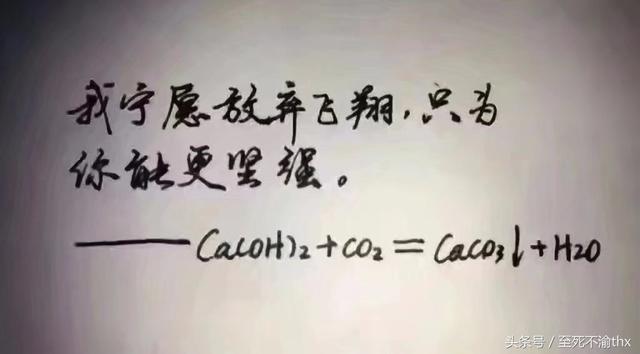 我宁愿放弃飞翔,只为
你能更坚强。
——Ca(OH)2+CO2=CaCO3↓+H2O
头条号 / 至死不渝thx